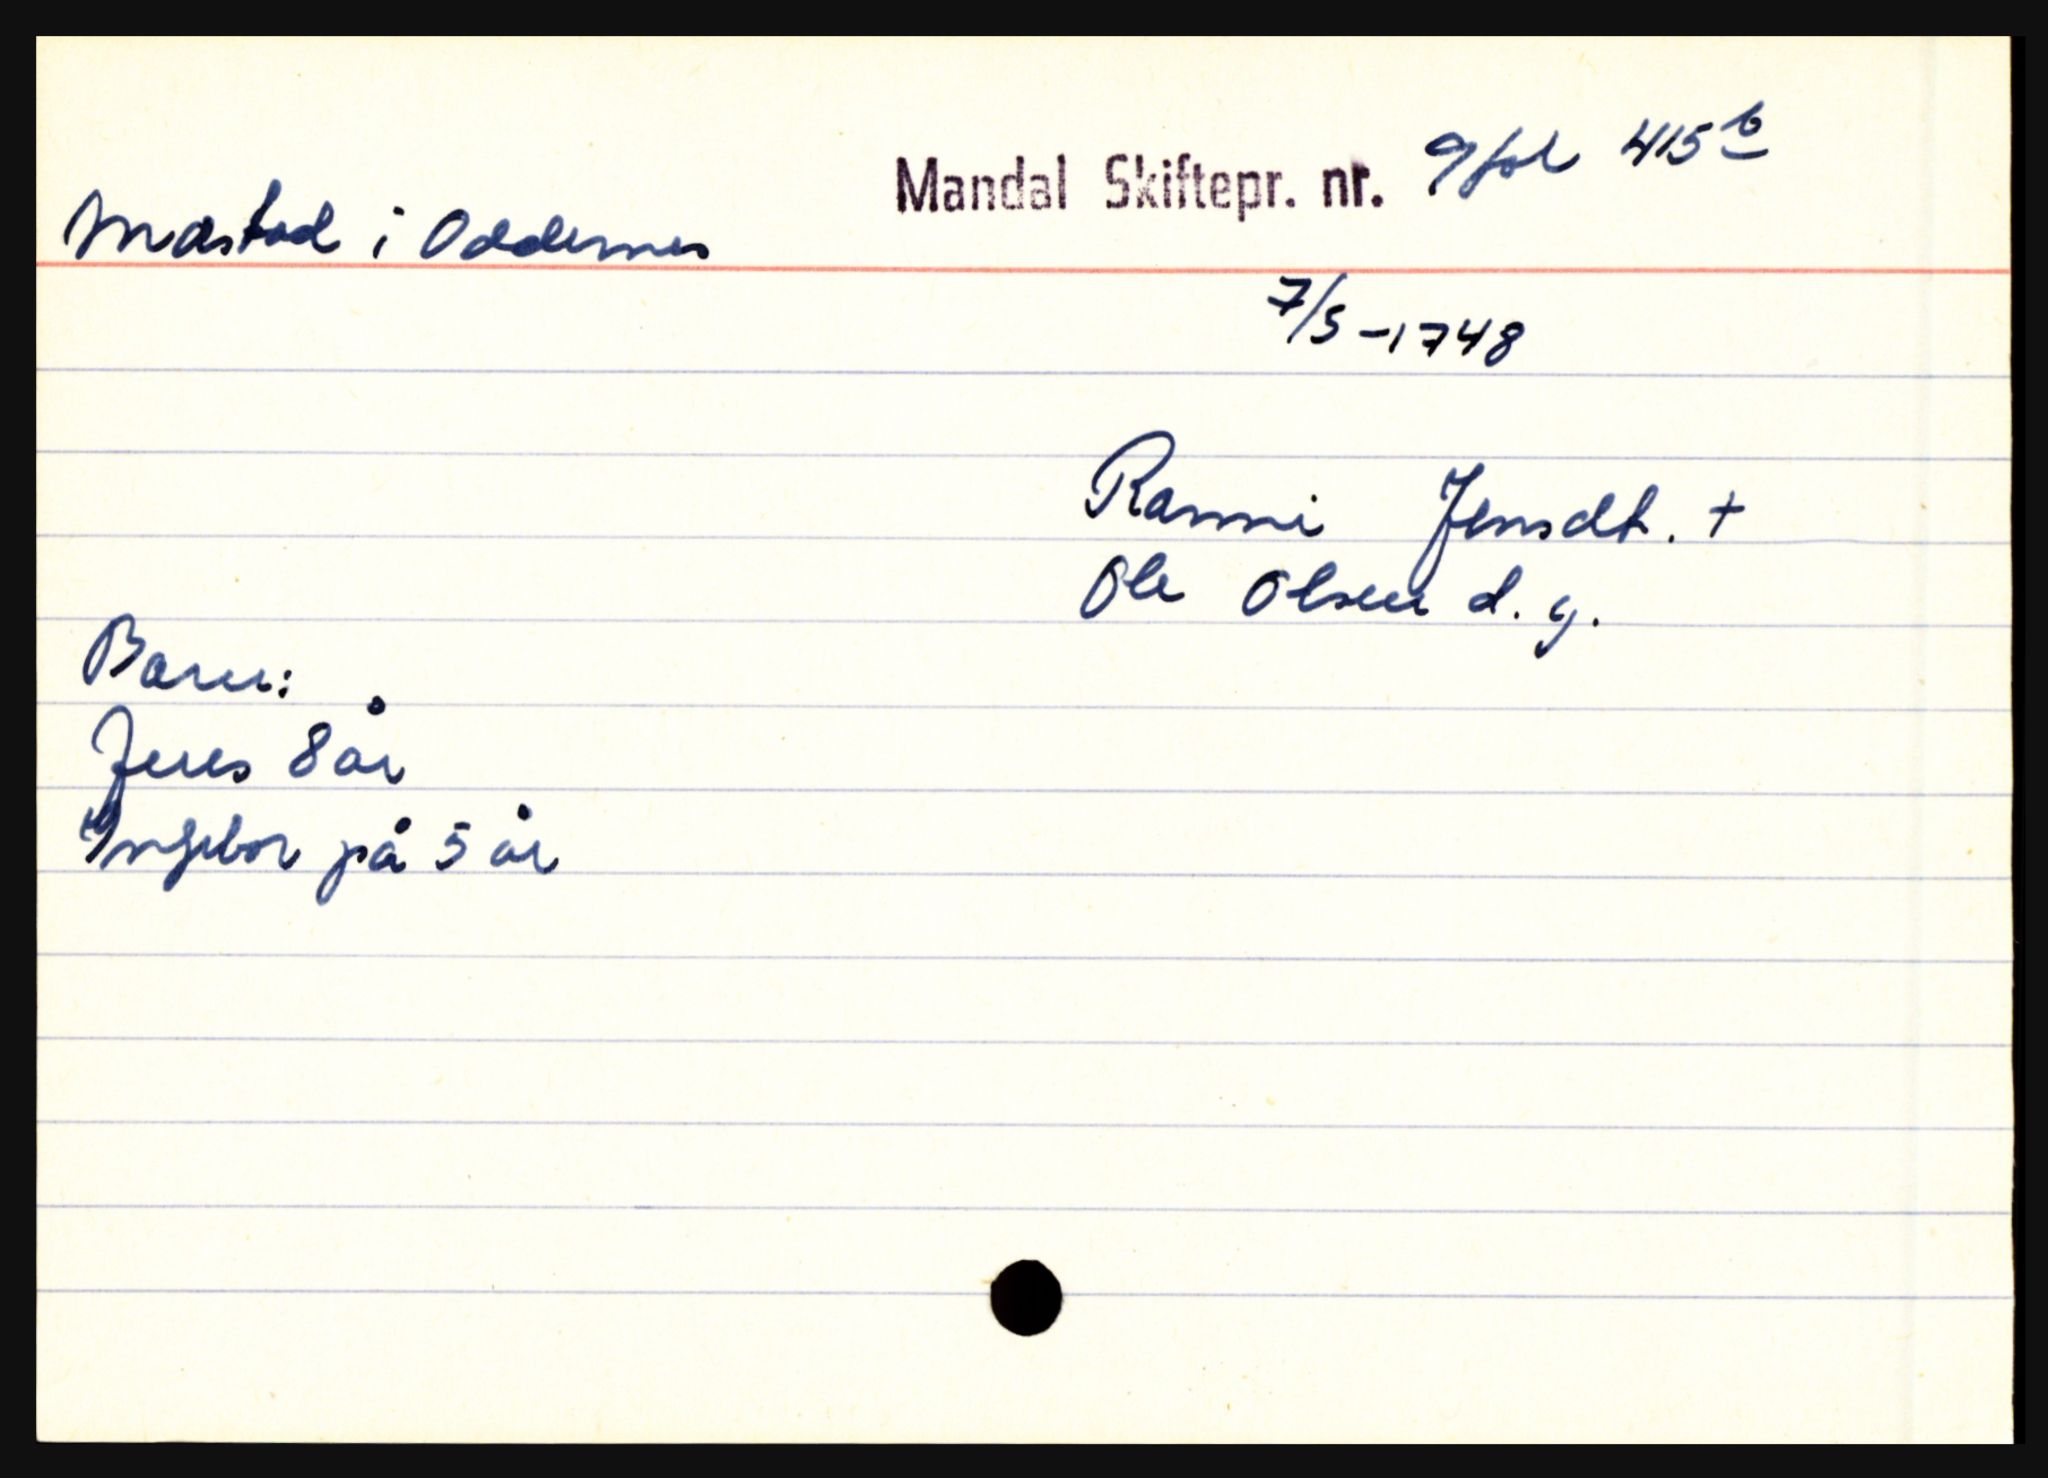 Mandal Skiftepr. nr. 9 fol 415 b
Mæstad i Oddernes
7/5-1748
Ranni Jensdt. +
Ole Olsen d. y.
Barn:
Jens 8 år
Ingebor på 5 år